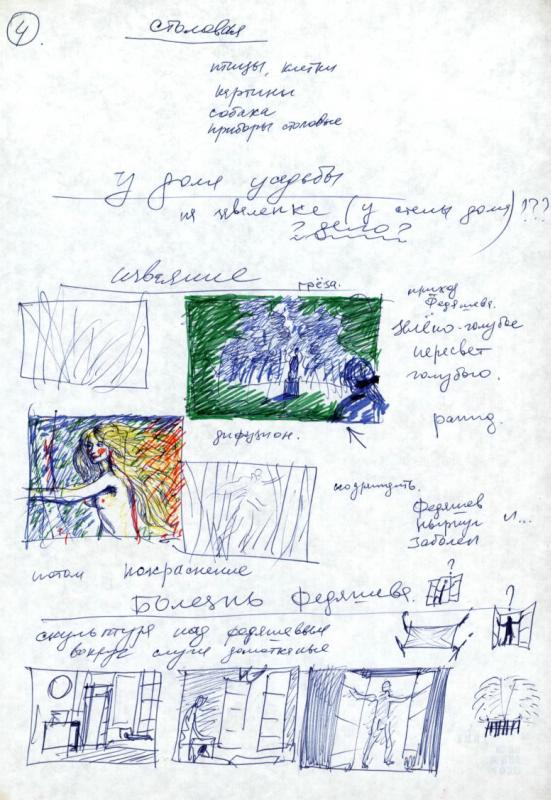 4.
столовая
птицы, клетки
картины
собака
приборы столовые
У дома усадьбы
(у стены дома) ???
? дело?
изваяние
грёза.
приход
Федяшева.
Зелёно-голубое
пересвет
голубого.
рапид.
дифузион.
Федяшев
нырнул и...
Заболел
потом покраснение
?
?
Болезнь Федяшева.
скульптура над Федяшевым
вокруг слуги домотканые